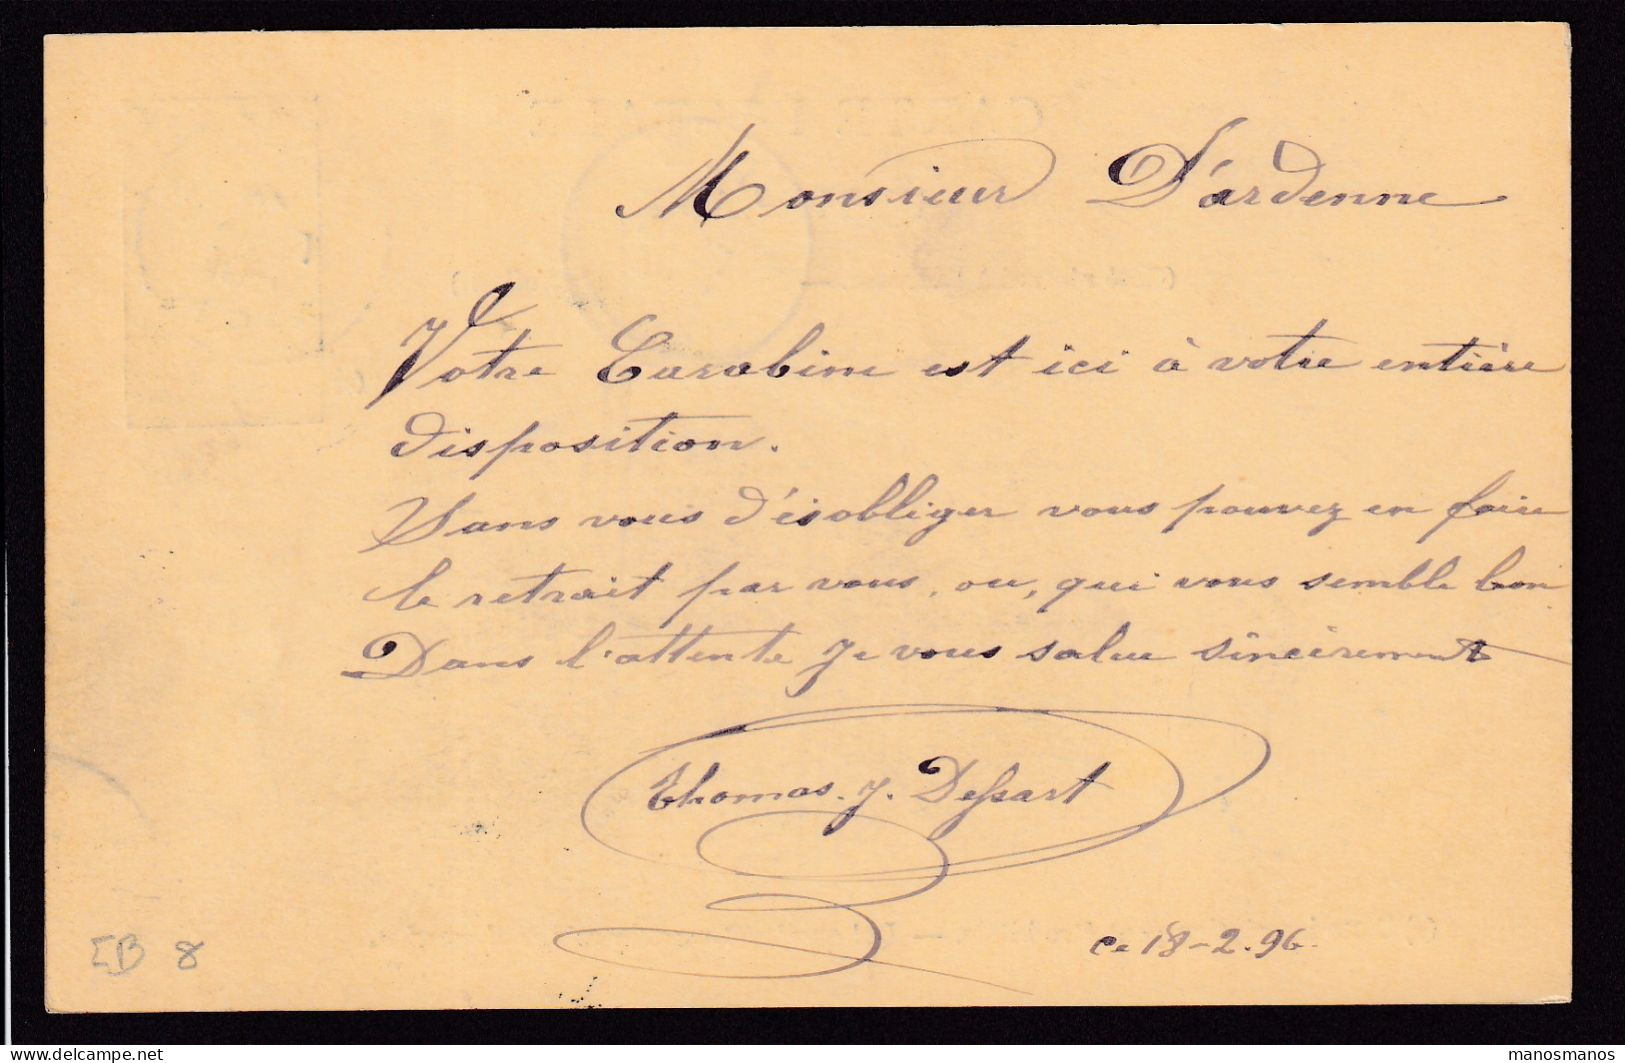 Monsieur D'ardenne
Votre Carabine est ici à votre entière
disposition.
Sans vous désobliger vous pouvez en faire
le retrait par vous, ou, qui vous semble bon
Dans l'attente Je vous salue sincèrement
Thomas. J. Dessart
Ce 18-2.96.
EB 8
manosmanos